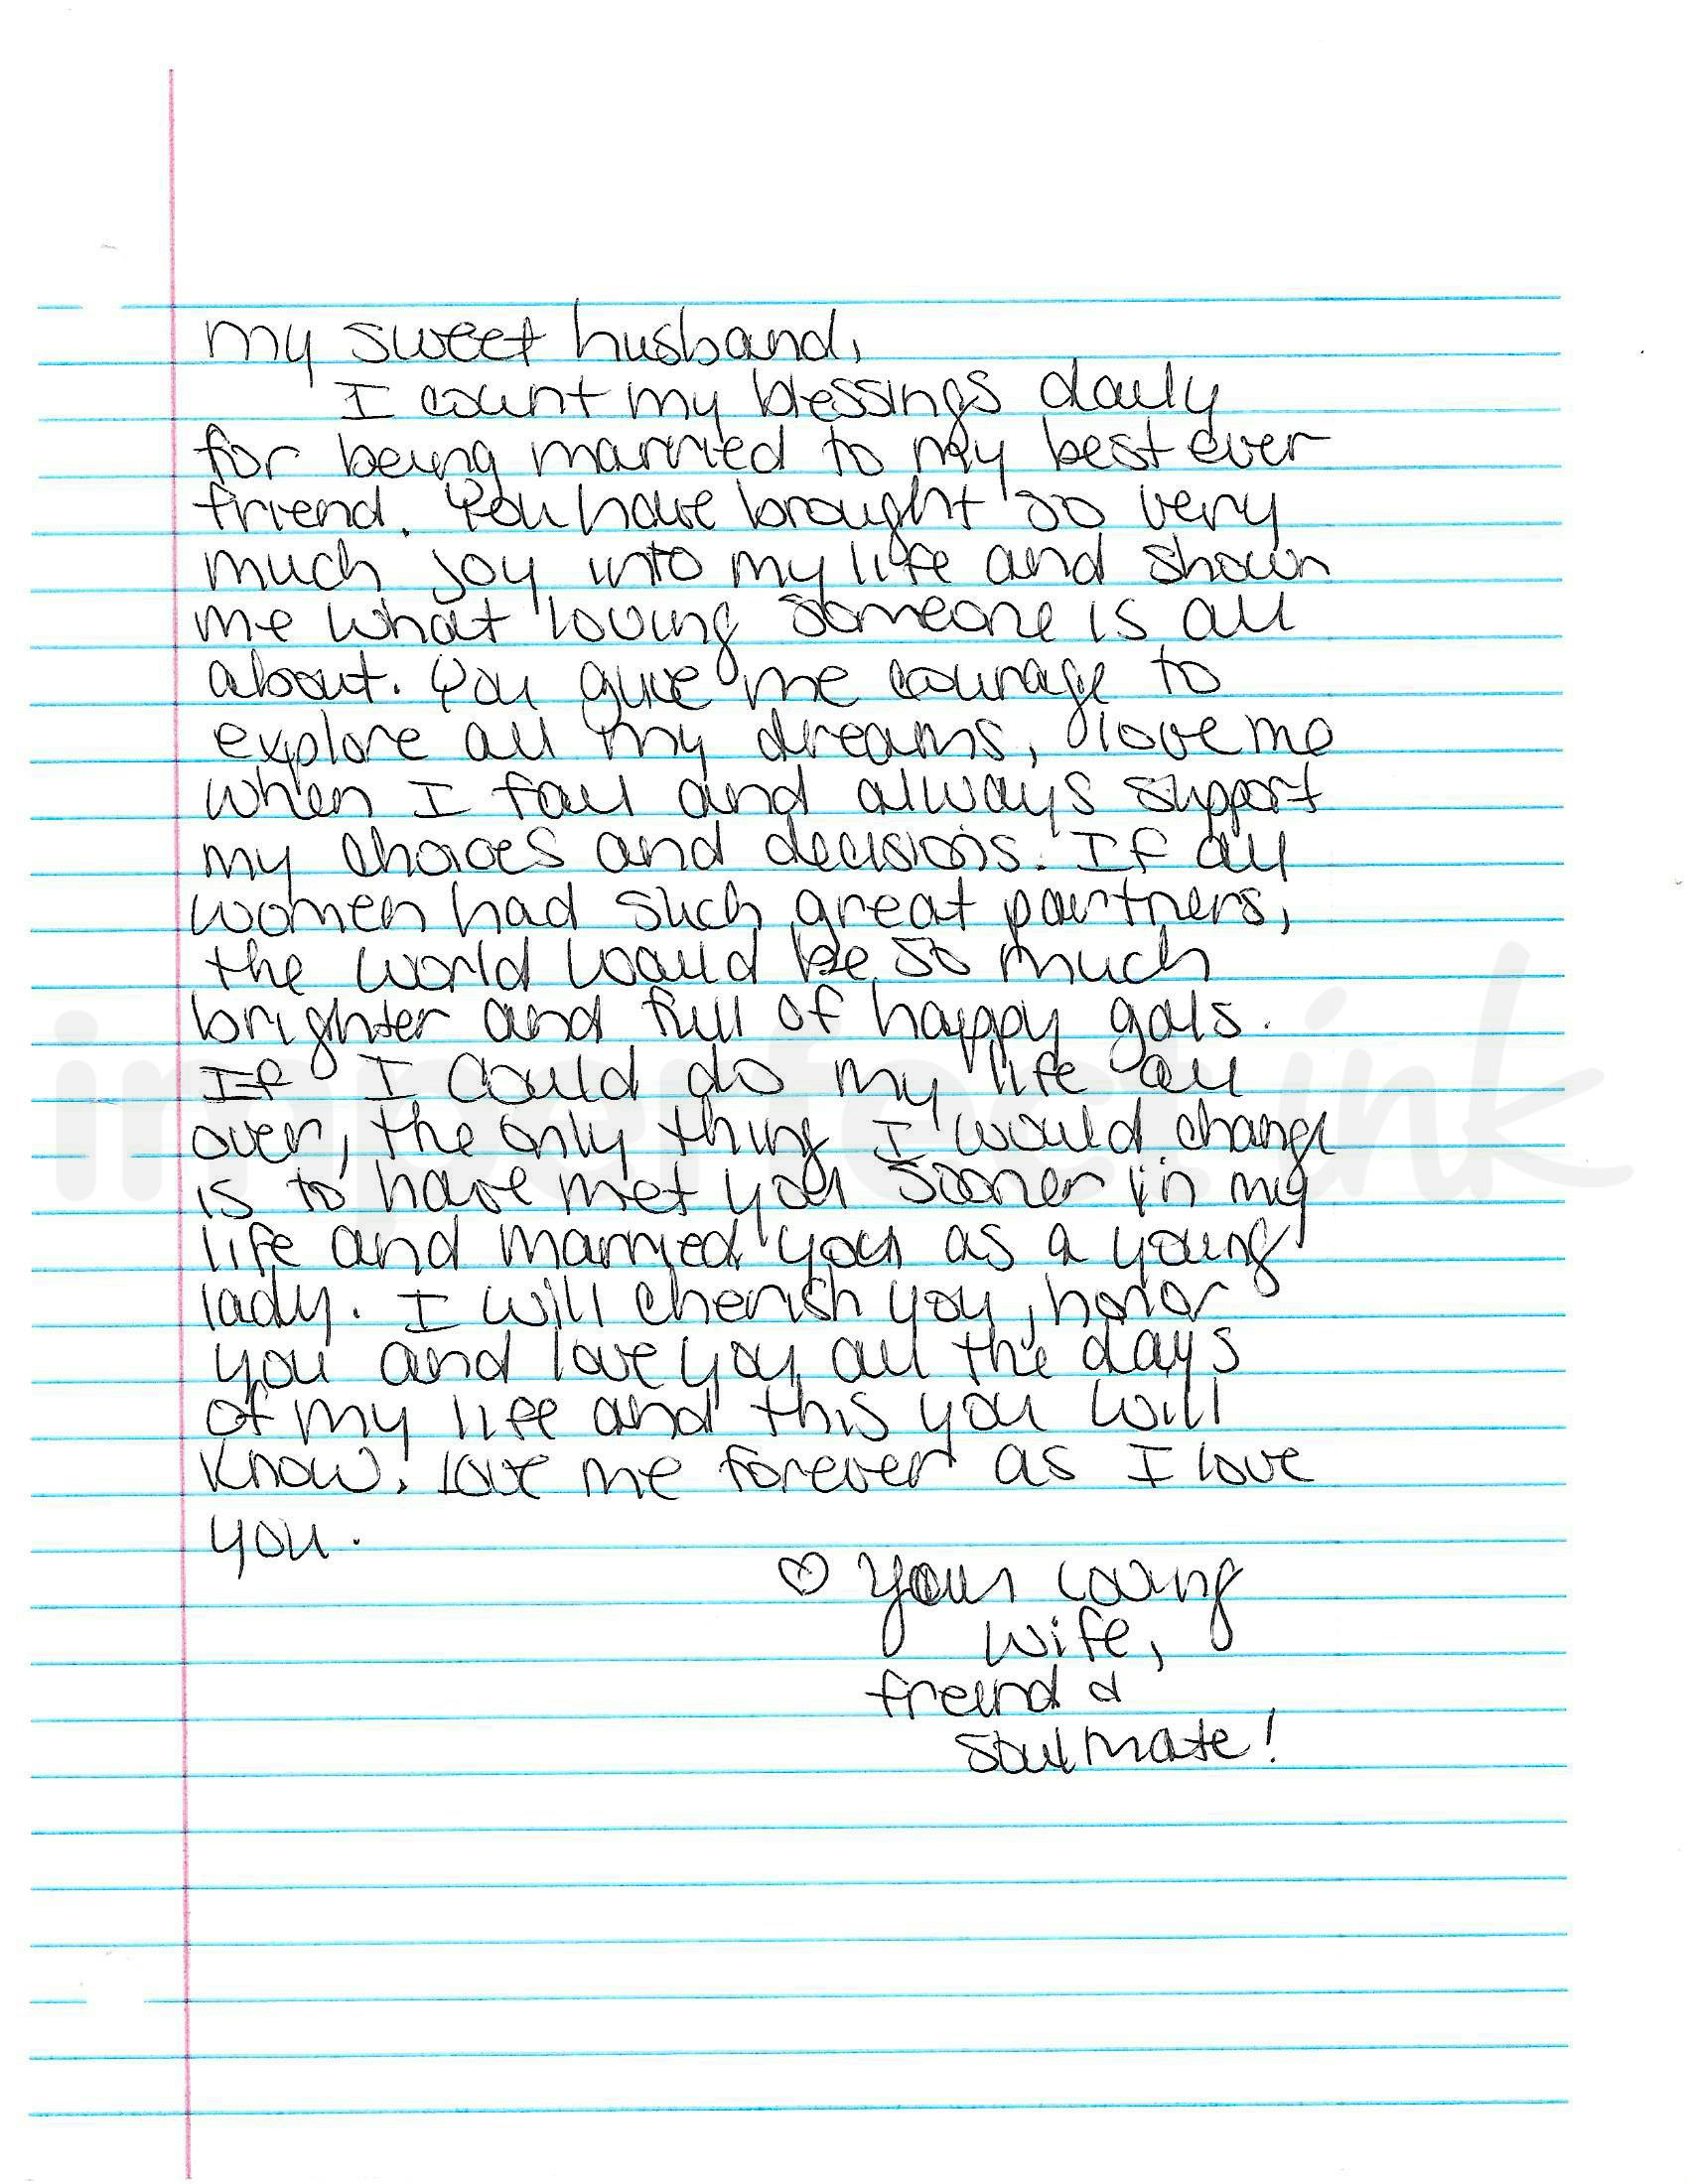 my sweet husband,
I count my blessings daily
for being married to my best ever
friend. You have brought so very
much joy into my life and shown
me what loving someone is all
about. You give me courage to
explore all my dreams, love me
when I fail and always support
my choices and decisions. If all
women had such great partners,
the world would be so much
brighter and full of happy gals.
If I could do my life all
over, the only thing I would change
is to have met you sooner in my
life and married you as a young
lady. I will cherish you, honor
you and love you all the days
of my life and this you will
know. Love me forever as I love
you.
♡ Your loving
wife,
freind &
soulmate!
imperfect.ink